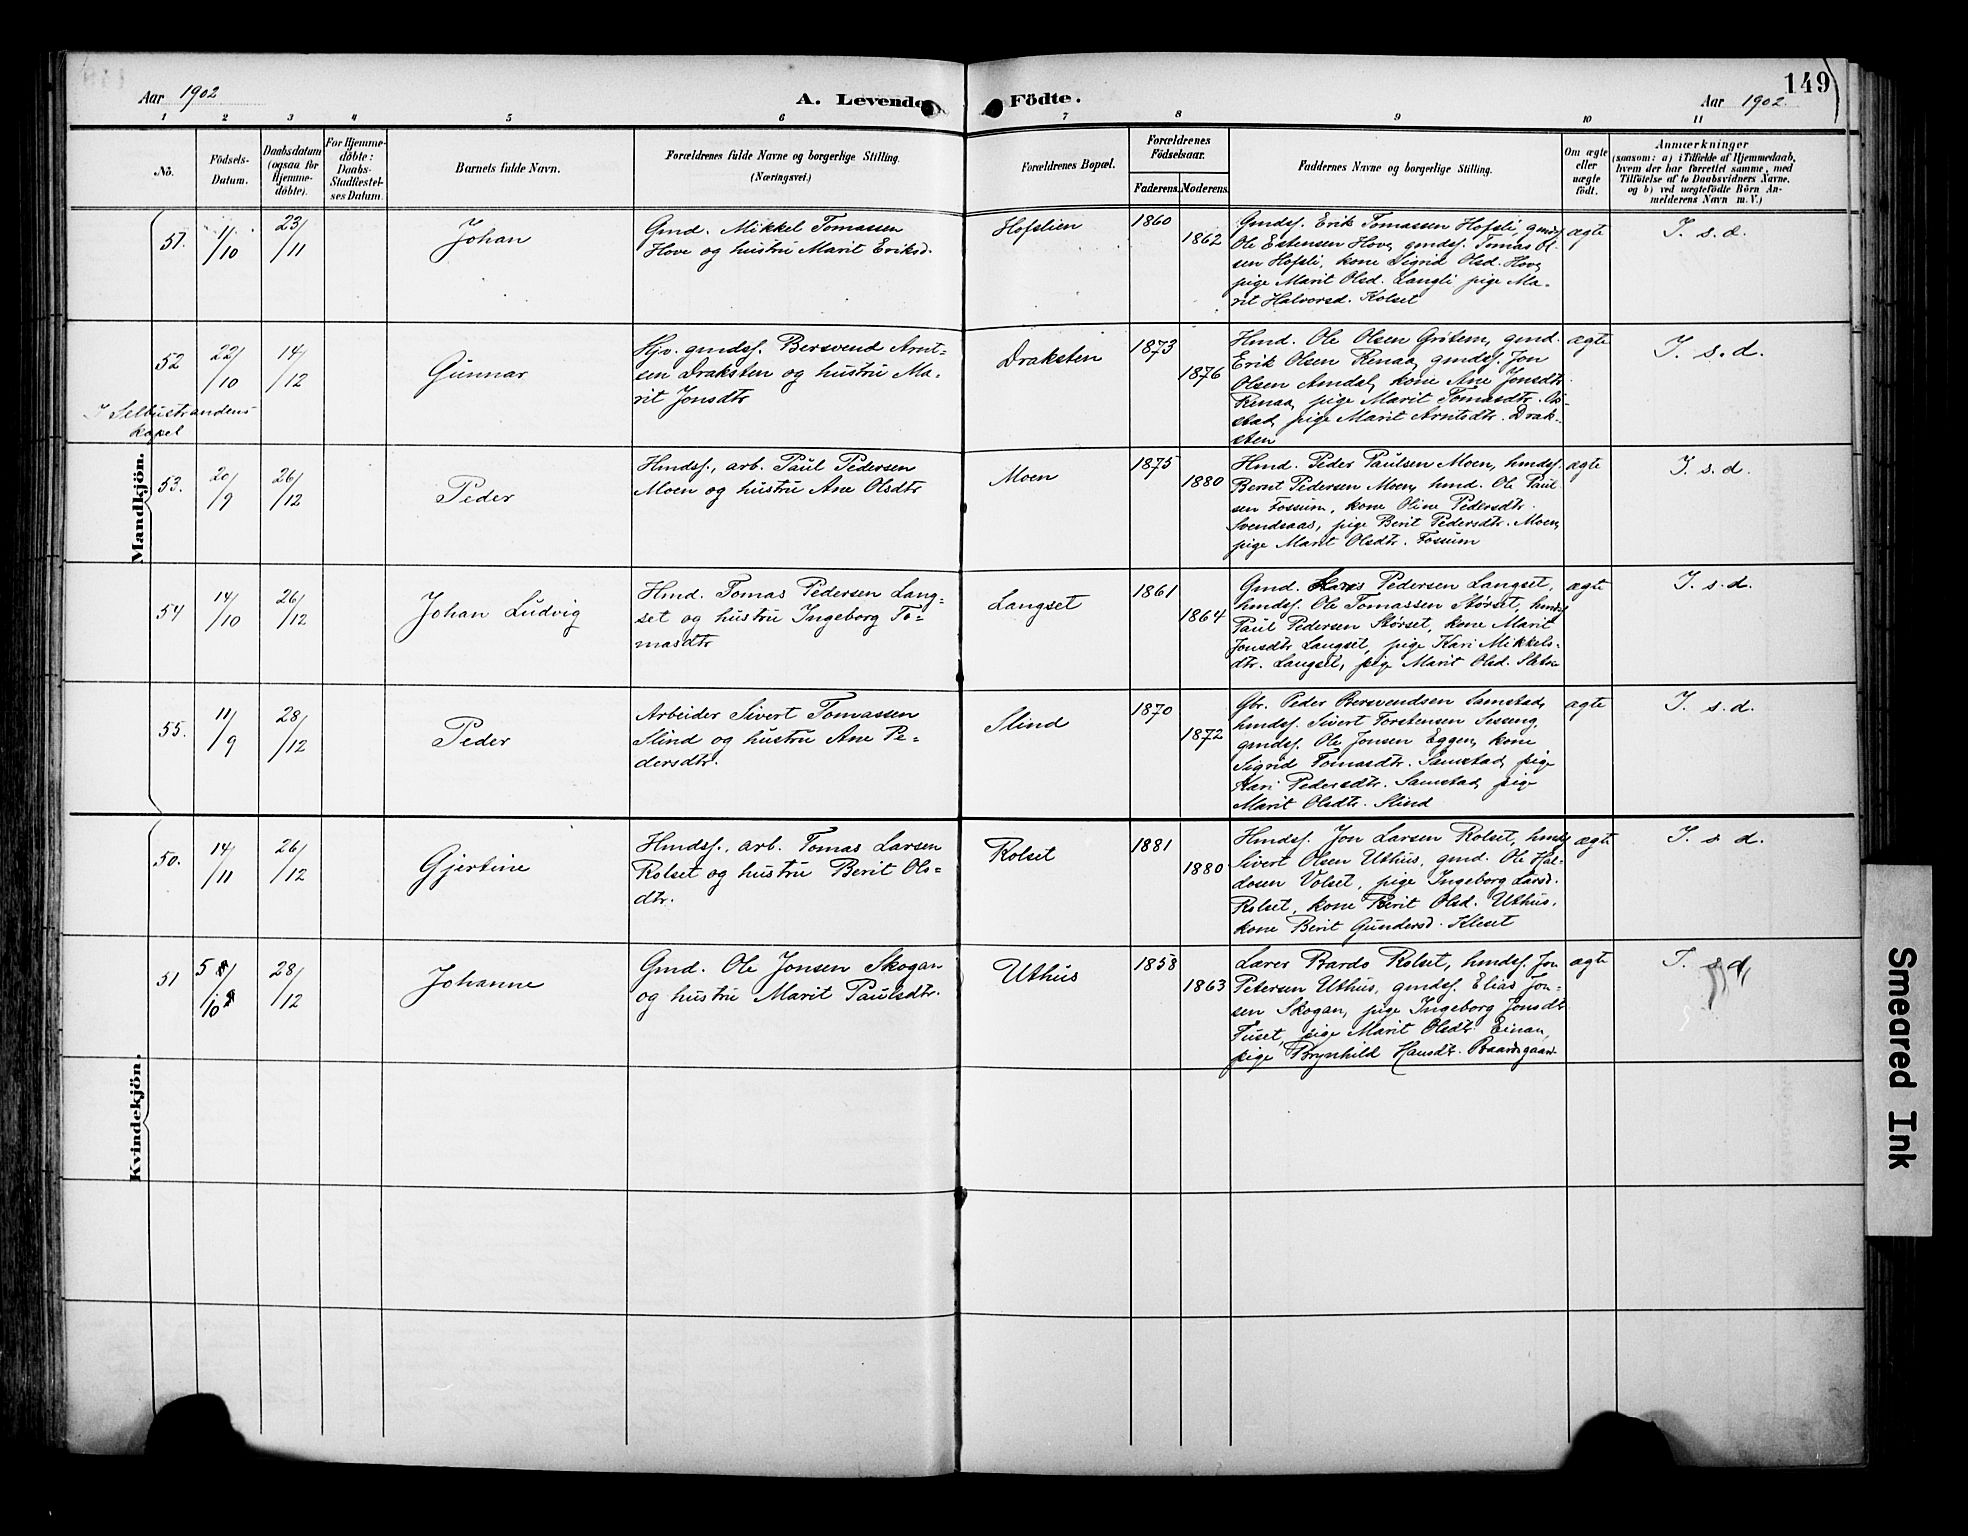 149
Aar 1902
A. Levende Födte.
Aar 1902.
1 2 3 4 5 6 7 8 9 10 11
No.
Födsels-
Datum.
Daabsdatum
(ogsaa for
Hjemme-
döbte).
For Hjemme-
döbte:
Daabs-
Stadfæstel-
ses Datum.
Barnets fulde Navn.
Forældrenes fulde Navne og borgerlige Stilling.
(Næringsvei.)
Forældrenes Bopæl.
Forældrenes
Födselsaar.
Faderens. Moderens.
Faddernes Navne og borgerlige Stilling.
Om ægte
eller
uægte
födt.
Anmærkninger
(saasom: a) i Tilfælde af Hjemmedaab,
hvem der har forrettet samme, med
Tilföielse af to Daabsvidners Navne,
og b) ved uægtefödte Börn An-
melderens Navn m. V.)
Mandkjön.
51.
11/10
23/11
Johan
Gmd. Mikkel Tomassen
Hove og hustru Marit Eriksd.
Hofslien
1860
1862
Gmdsf. Erik Tomassen Hofsli, gmdsf.
Ole Estensen Hove, gmdsf. Tomas Ol-
sen Hofsli, kone Sigrid Olsd. Hove,
pige Marit Olsd. Langli pige Ma-
rit Halvorsd. Kolset
ægte
I. s. d.
52
22/10
14/12
I Selbustrandens
kapel
Gunnar
Hjv. gmdsf. Bersvend Arnt-
sen Draksten og hustru Ma-
rit Jonsdtr
Draksten
1873
1876
Hmd. Ole Olsen Grötem, gmd.
Erik Olsen Renaa, gmdsf. Jon
Olsen Amdal, kone Ane Jonsdtr
Renaa, pige Marit Tomasdtr. Os-
stad, pige Marit Arntsdtr. Drak-
sten
ægte
I. s. d.
53.
20/9
26/12
Peder
Hmdsf., arb. Paul Pedersen
Moen og hustru Ane Olsdtr
Moen
1875
1880
Hmd. Peder Paulsen Moen, hmdsf.
Bernt Pedersen Moen, hmd. Ole Paul-
sen Fossum, kone Oline Pedersdtr.
Svendsaas, pige Berit Pedersdtr. Moen,
pige Marit Olsdtr. Fossum
ægte
I. s. d.
54
14/10
26/12
Johan Ludvig
Hmd. Tomas Pedersen Lang-
set og hustru Ingeborg To-
masdtr
Langset
1861
1864
Gmd. Pedersen Langset,
hmdsf. Ole Tomassen Störset, hmdsf
Paul Pedersen Störset, kone Marit
Jonsdtr Langset, pige Kari Mikkels-
dtr. Langset, pige Marit Olsd.
ægte
I. s. d.
55.
11/9
28/12
Peder
Arbeider Sivert Tomassen
Slind og hustru Ane Pe-
dersdtr.
Slind
1870
1872
Gbr. Peder Bersvendsen Samstad,
hmdsf. Sivert Torstensen Sesseng,
gmdsf. Ole Jonsen Eggen, kone
Sigrid Tomasdtr. Samstad, pige
Kari Pedersdtr. Samstad, pige
Marit Olsdtr. Slind
ægte
I. s. d.
Kvindekjön.
50.
14/11
26/12
Gjertine
Hmdsf., arb. Tomas Larsen
Rolset og hustru Berit Ols-
dtr.
Rolset
1881
1880
Hmdsf. Jon Larsen Rolset, hmdsf
Sivert Olsen Uthus, gmd. Ole Hal-
dosen Volset, pige Ingeborg Larsd.
Rolset, kone Berit Olsd. Uthus,
kone Berit Gundersd. Kleset
ægte
I. s. d.
51
28/12
Johanne
Gmd. Ole Jonsen Skogan
og hustru Marit Paulsdtr.
Uthus
1858
1863
Lærer Bardo Rolset, hmdsf. Jon
Petersen Uthus, gmdsf. Elias Jon-
sen Skogan, pige Ingeborg Jonsdtr
Fuset, pige Marit Olsdtr. Einan,
pige Brynhild Hansdtr. Baardsgaard
ægte
I. s. d.
Smeared Ink